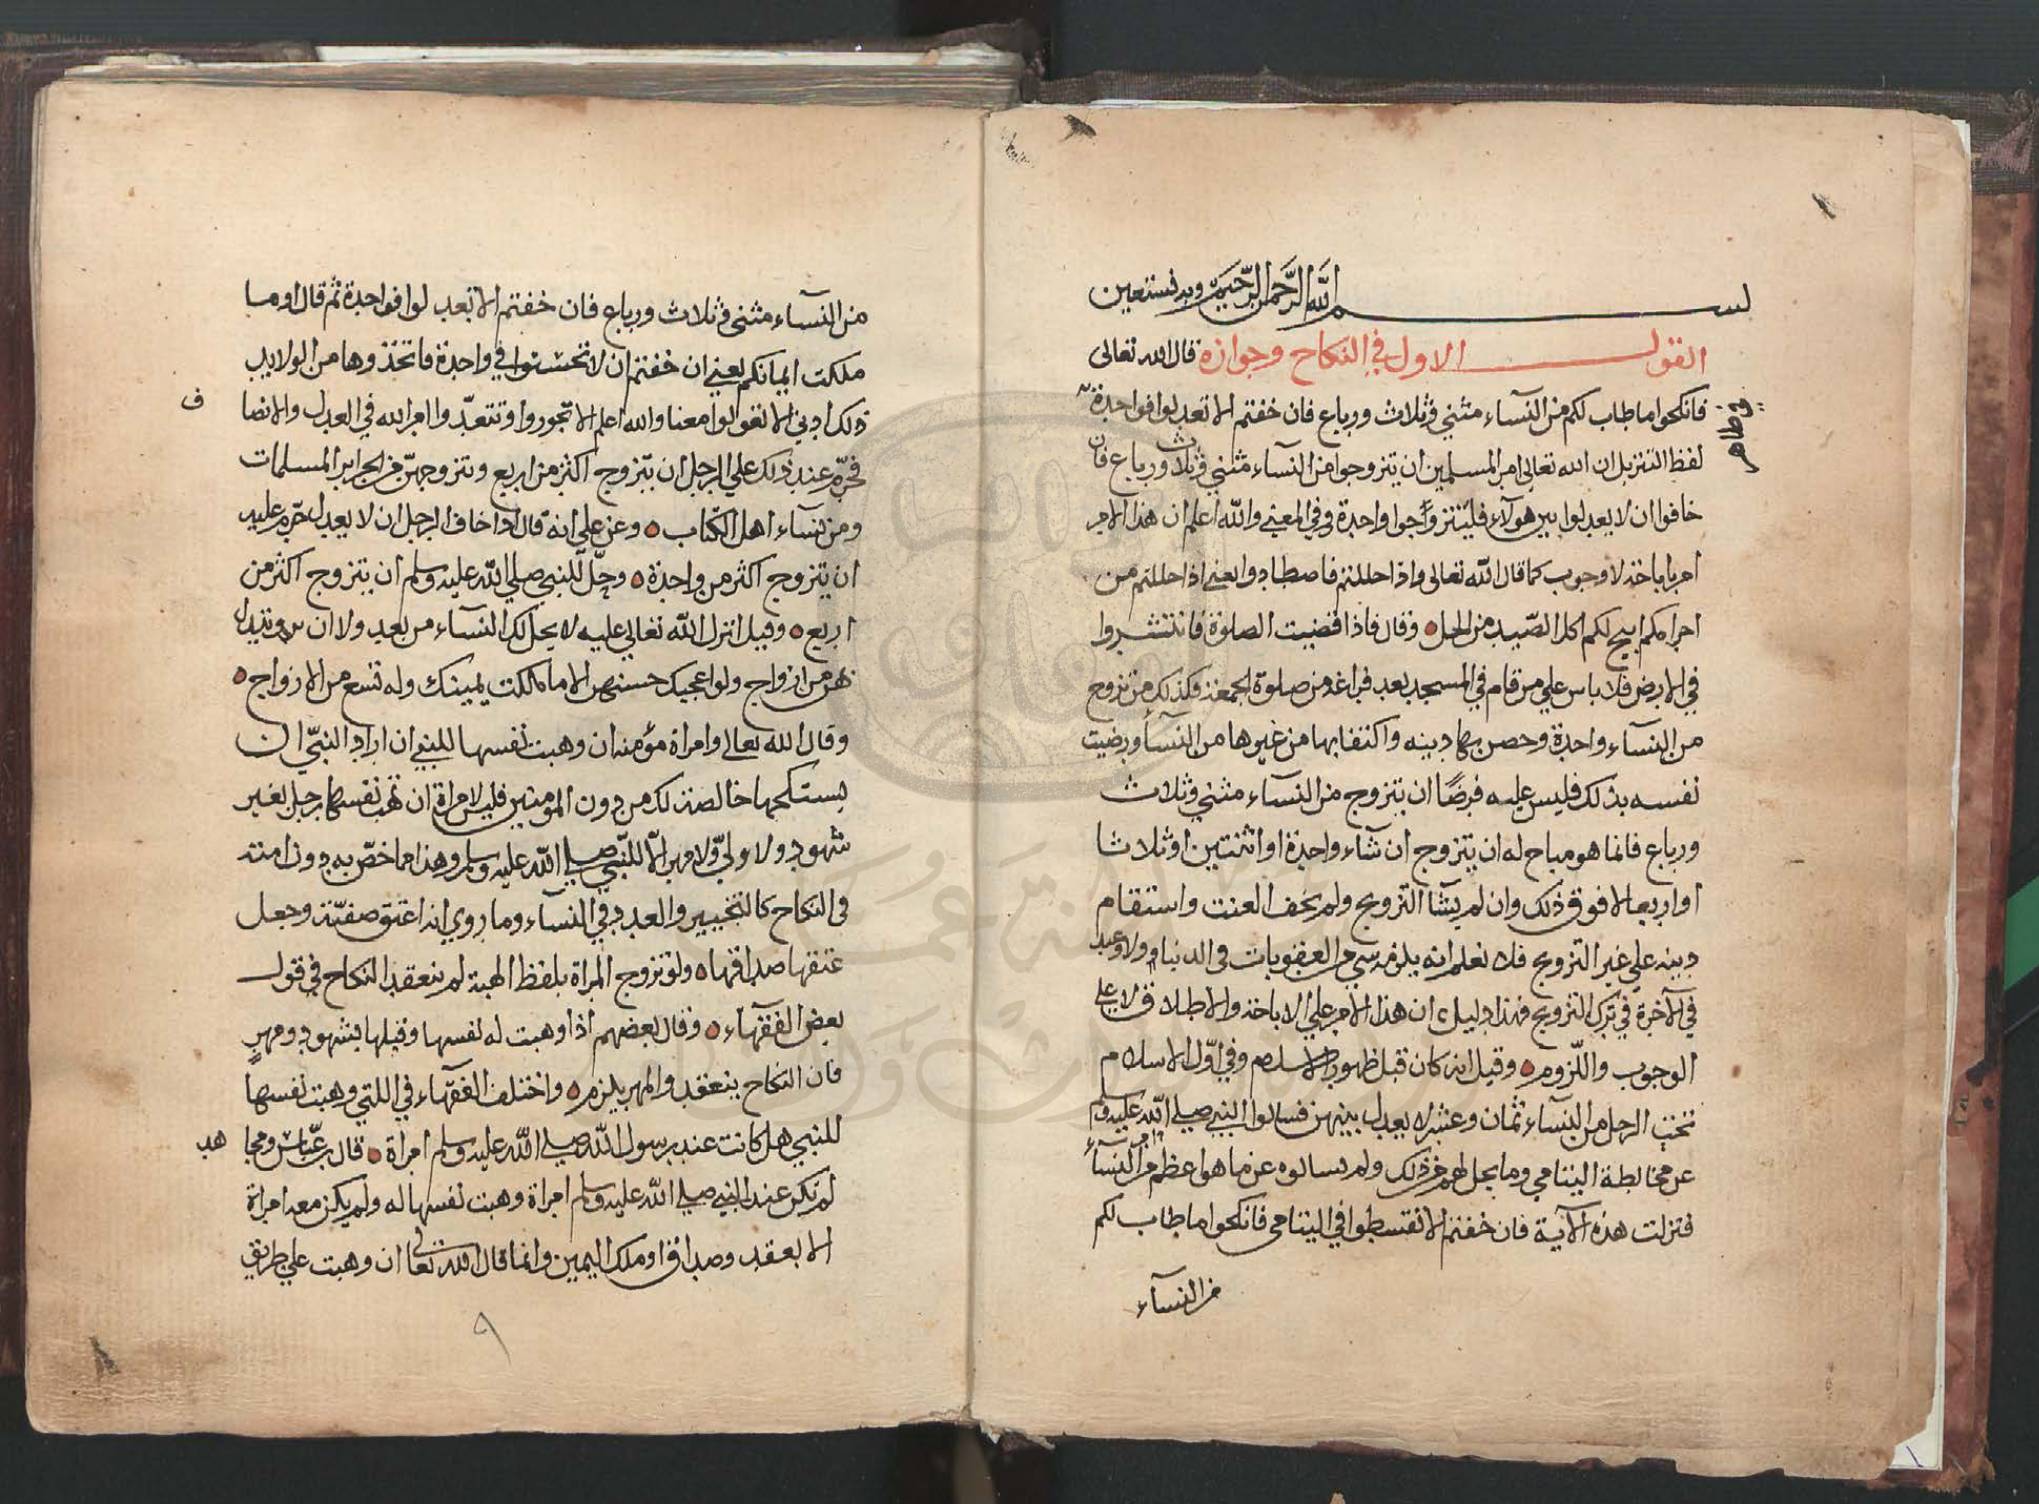 بسم الله الرحمن الرحيم وبه نستعين
القول الاول في النكاح وجوازه قال الله تعالى
فانكحوا ما طاب لكم من النسآء مثني وثلاث ورباع فان خفتم الا تعدلوا فواحدة
لفظ التنزيل ان الله تعالى امر المسلمين ان يتزوجوا من النسآء مثني وثلاث ورباع فان
خافوا ان لا يعدلوا بين هولآء فليتزوجوا واحدة وفي المعني والله اعلم ان هذا الامر
امر باباحة لا وجوب كما قال الله تعالى واذا حللتم فاصطادوا يعني اذا حللتم من
احرامكم ابيح لكم اكل الصيد من الحل وقال فاذا قضيت الصلوة فانتشروا
في الارض فلا باس علي من قام في المسجد بعد فراغه من صلوة الجمعة فكذلك من تزوج
من النسآء واحدة وحصن بها دينه واكتفا بها من غيرها من النسآء ورضيت
نفسه بذلك فليس عليه فرضا ان يتزوج من النسآء مثني وثلاث
ورباع فانما هو مباح له ان يتزوج ان شآء واحدة او اثنتين او ثلاثا
او اربعا لا فوق ذلك وان لم يشا التزويج ولم يخف العنت واستقام
دينه علي غير التزويج فلا نعلم انه يلزمه شي من العقوبات في الدنيا ولا وعيد
في الآخرة في ترك التزويج فهذا دليل ان هذا الامر علي الاباحة والاطلاق لا علي
الوجوب واللزوم وقيل انه كان قبل ظهور الاسلام وفي اول الاسلام
تحت الرجل من النسآء ثمان وعشر لا يعدل بينهن فسالوا النبي صلي الله عليه وسلم
عن مخالطة اليتامي وما يحل لهم من ذلك ولم يسالوه عن ما هو اعظم من النسآء
فنزلت هذه الآية فان خفتم الا تقسطوا في اليتامى فانكحوا ما طاب لكم
من النسآء
من النسآء مثنى وثلاث ورباع فان خفتم الا تعدلوا فواحدة ثم قال او ما
ملكت ايمانكم يعني ان خفتم ان لا تحسنوا في واحدة فاتخذوها من الولايد
ذلك ادني الا تعولوا معنا والله اعلم الا تجوروا وتتعدوا امر الله في العدل والانصا
ف
فحرم عند ذلك علي الرجل ان يتزوج اكثر من اربع وتزوجهن من الحراير المسلمات
ومن نسآء اهل الكتاب وعن علي انه قال اذا خاف الرجل ان لا يعدل حرم عليه
ان يتزوج اكثر من واحدة وحل للنبي صلي الله عليه وسلم ان يتزوج اكثر من
اربع وقيل انزل الله تعالي عليه لا يحل لك النسآء من بعد ولا ان تبدل
بهن من ازواج ولو اعجبك حسنهن الا ما ملكت يمينك وله تسع من الازواج
وقال الله تعالى وامراة مؤمنه ان وهبت نفسها للنبي ان اراد النبي ان
يستنكحها خالصة لك من دون المومنين فليس لامراة ان تهب نفسها لرجل بغير
شهود ولا ولي ولا مهر الا للنبي صلي الله عليه وسلم وهذا مما خص به دون امته
في النكاح كالتخيير والعدد في النسآء وما روي انه اعتق صفية وجعل
عتقها صداقها ولو تزوج المراة بلفظ الهبة لم ينعقد النكاح في قول
بعض الفقهآء وقال بعضهم اذا وهبت له نفسها وقبلها بشهود ومهر
فان النكاح ينعقد والمهر يلزم واختلف الفقهآء في اللتي وهبت نفسها
للنبي هل كانت عند رسول الله صلي الله عليه وسلم امراة قال بن عباس ومجا
هد
لم تكن عند النبي صلي الله عليه وسلم امراة وهبت نفسها له ولم يكن معه امراة
الا بعقد وصداق او ملك اليمين وانما قال الله تعالى ان وهبت علي طريق
٩
١